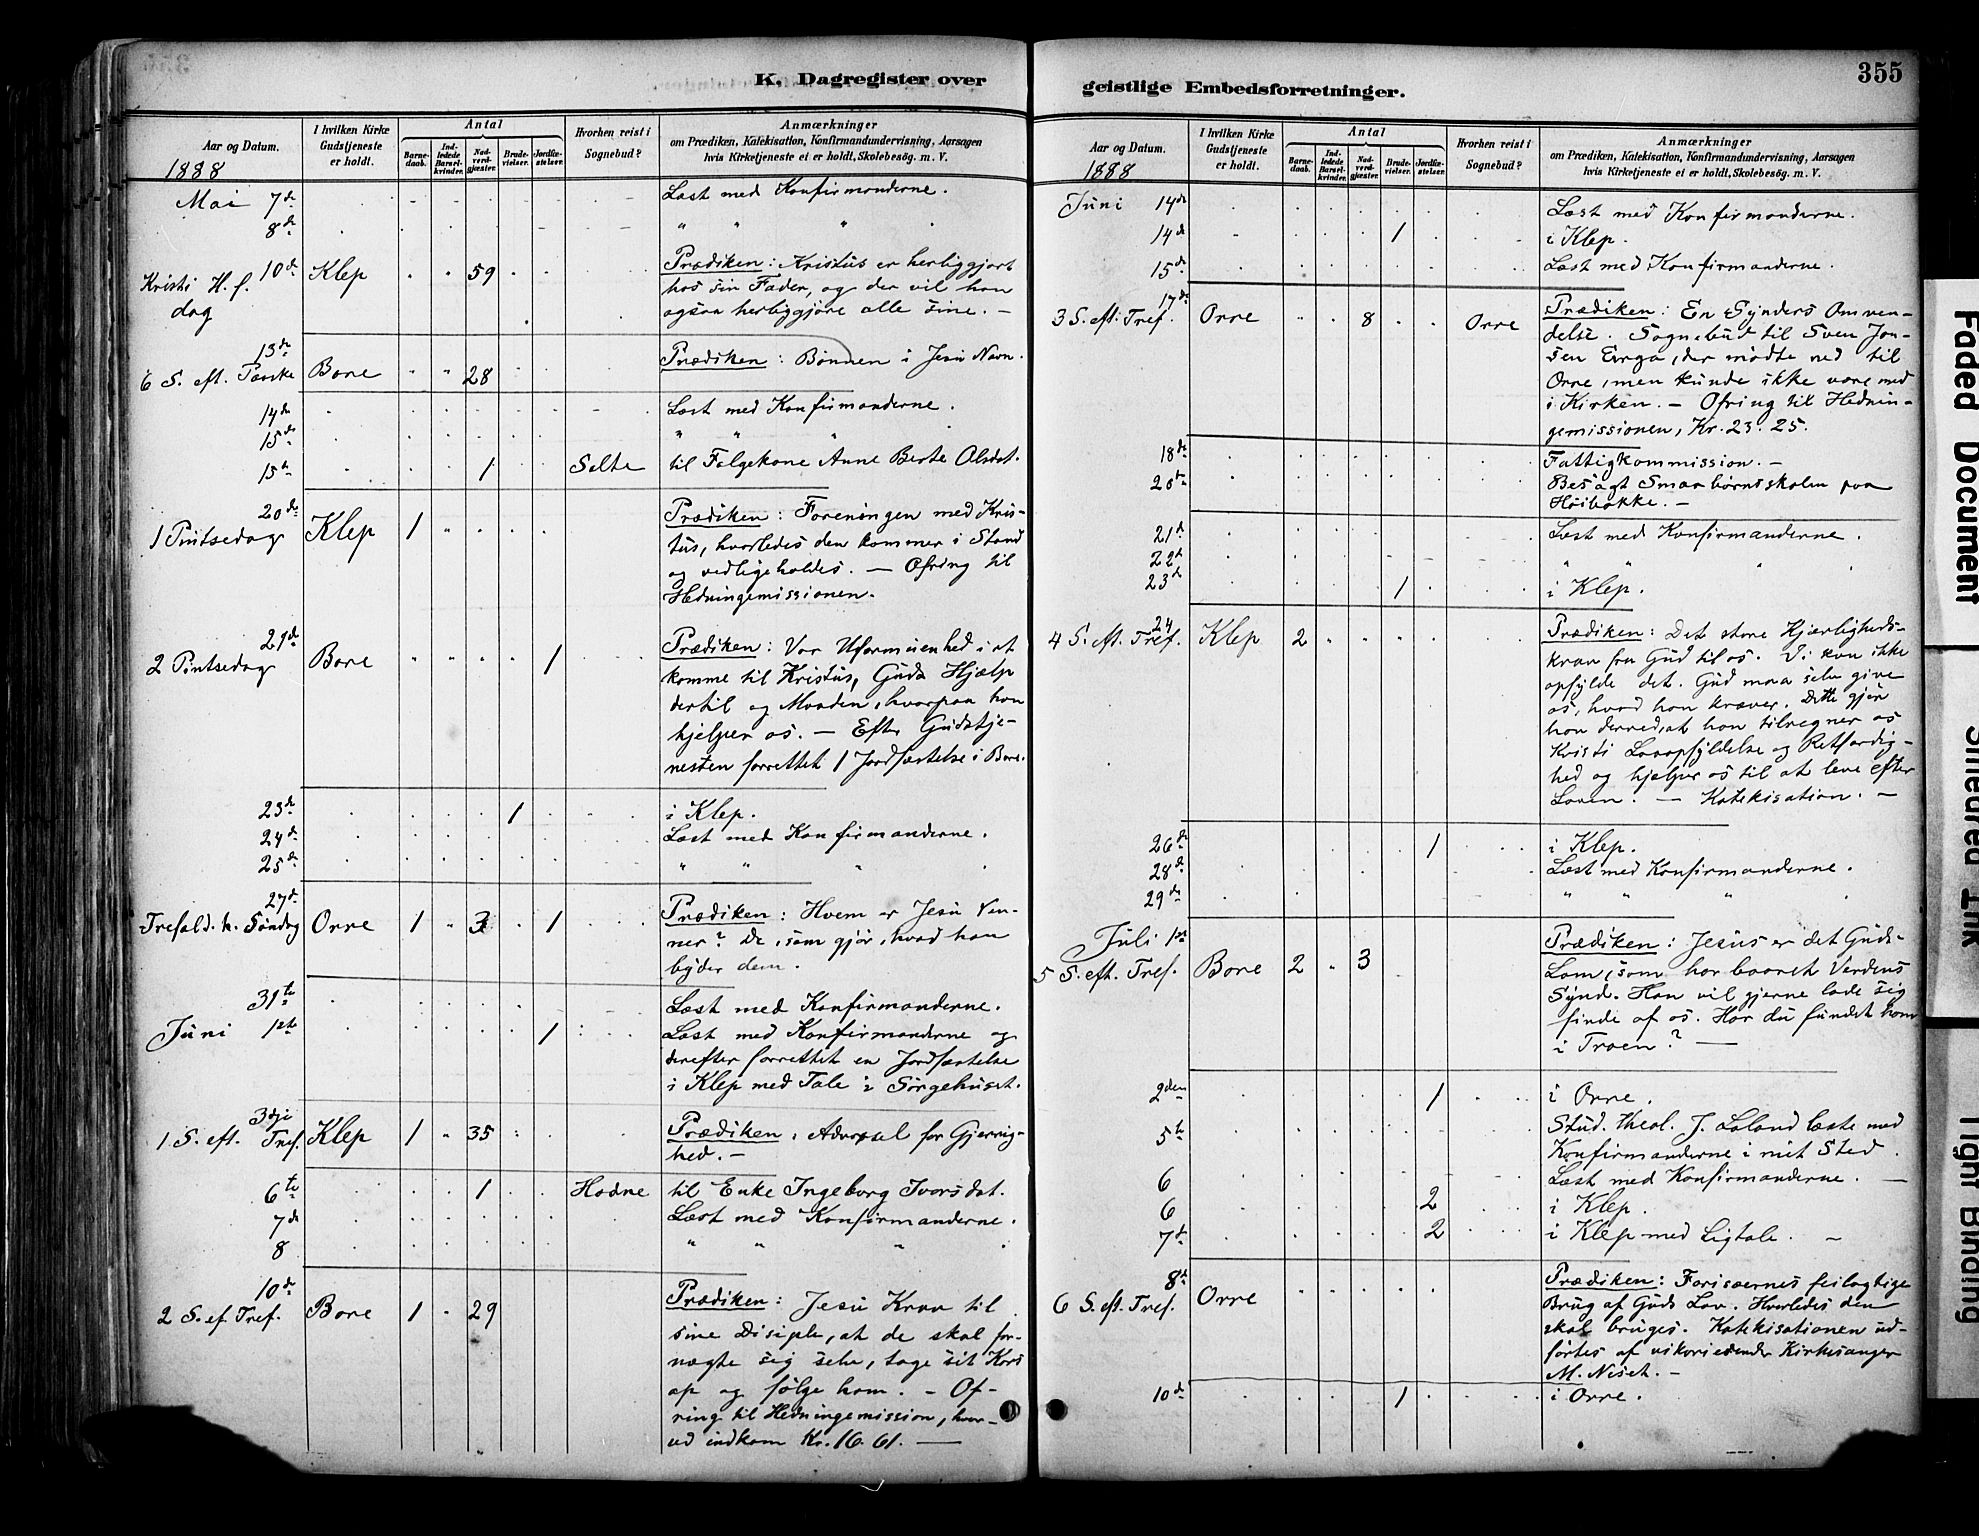 K. Dagregister over
Aar og Datum.
I hvilken Kirke Gudstjeneste er holdt.
Antal
Barnedaab.
Indledede Barselkvinder.
Nadverdgjæster.
Brudevielser.
Jordfæstelser.
Hvorhen reist i Sognebud?
Anmærkninger
om Prædiken, Katekisation, Konfirmandundervisning, Aarsagen
hvis Kirketjeneste ei er holdt, Skolebesög. m. V.
1888
Mai 7de Læst med Konfirmanderne.
8de " " " "
Kristi H. f. dag 10de Klep 59 Prædiken: Kristus er herliggjort
hos sin Fader, og der vil han
ogsaa herliggjøre alle sine. —
13de
6 S. eft. Paaske Bore 28 Prædiken: Bønnen i Jesu Navn.
14de Læst med Konfirmanderne.
15de " " "
15de 1 Salte til Følgekone Anne Berte Olsdat.
20de
1 Pintsedag Klep 1 Prædiken: Foreningen med Kris-
tus, hvorledes den kommer i Stand
og vedligeholdes. — Ofring til
Hedningemissionen.
21de
2 Pintsedag Bore 1 Prædiken: Vor Uformuenhed i at
komme til Kristus, Guds Hjælp
dertil og Maaden, hvorpaa han
hjelper os. — Efter Gudstje-
nesten forrettet 1 Jordfæstelse i Bore.
23de 1 i Klep.
24de Læst med Konfirmanderne.
25de " " " "
27de
Trefold. h. Søndag Orre 1 3 1 Prædiken: Hvem er Jesu Ven-
ner? De, som gjør, hvad han
byder dem.
31te Læst med Konfirmanderne.
Juni 1ste 1 Læst med Konfirmanderne og
derefter forrettet en Jordfæstelse
i Klep med Tale i Sørgehuset.
3dje
1 S. eft. Tref. Klep 1 35 Prædiken: Advarsel for Gjerrig-
hed. —
6te 1 Hodne til Enke Ingeborg Ivorsdat.
7de Læst med Konfirmanderne.
8 " " " "
10de
2 S. ef. Tref. Bore 1 29 Prædiken: Jesu Krav til
sine Disiple, at de skal for-
nægte sig selv, tage sit Kors
op og følge ham. — Of-
ring til Hedningemission, hvor-
ved indkom Kr. 16.61. —
geistlige Embedsforretninger.
355
Aar og Datum.
I hvilken Kirke Gudstjeneste er holdt.
Antal
Barnedaab.
Indledede Barselkvinder.
Nadverdgjæster.
Brudevielser.
Jordfæstelser.
Hvorhen reist i Sognebud?
Anmærkninger
om Prædiken, Katekisation, Konfirmandundervisning, Aarsagen
hvis Kirketjeneste ei er holdt, Skolebesög. m. V.
1888
Juni 14de Læst med Konfirmanderne.
14de 1 i Klep.
15de Læst med Konfirmanderne.
17de
3 S. eft. Tref. Orre 8 Orre Prædiken: En Synders Omven-
delse. Sognebud til Sven Jon-
sen Erga, der mødte ned til
Orre, men kunde ikke være med
i Kirken. — Ofring til Hednin-
gemissionen, Kr. 23.25.
18de Fattigkommission. —
20de Besøgt Smaabørnsskolen paa
Høibakke. —
21de Læst med Konfirmanderne.
22de " " " "
23de 1 i Klep.
24
4 S. eft. Tref. Klep 2 Prædiken: Det store Kjærligheds-
krav fra Gud til os. Vi kan ikke
opfylde det. Gud maa selv give
os, hvad han kræver. Dette gjør
han derved, at han tilregner os
Kristi Lovopfyldelse og Retfærdig-
hed og hjelper os til at leve efter
Loven. — Katekisation. —
26de 1 i Klep.
28de Læst med Konfirmanderne.
29de " " " "
Juli 1ste
5 S. eft. Tref. Bore 2 3 Prædiken: Jesus er det Guds-
Lam, som har baaret Verdens
Synd. Han vil gjerne lade sig
finde af os. Har du fundet ham
i Troen? —
2den 1 i Orre.
5te Stud. theol. J. Laland læste med
Konfirmanderne i mit Sted.
6 Læst med Konfirmanderne. —
6 2 i Klep.
7de 2 i Klep med Ligtale. —
8de
6 S. eft. Tref. Orre Prædiken: Farisæernes feilagtige
Brug af Guds Lov. Hvorledes den
skal bruges. Katekisationen ud-
førtes af vikarierende Kirkesanger
M. Neset. —
10de 1 i Orre.
Faded Document
Smeared Ink
Tight Binding